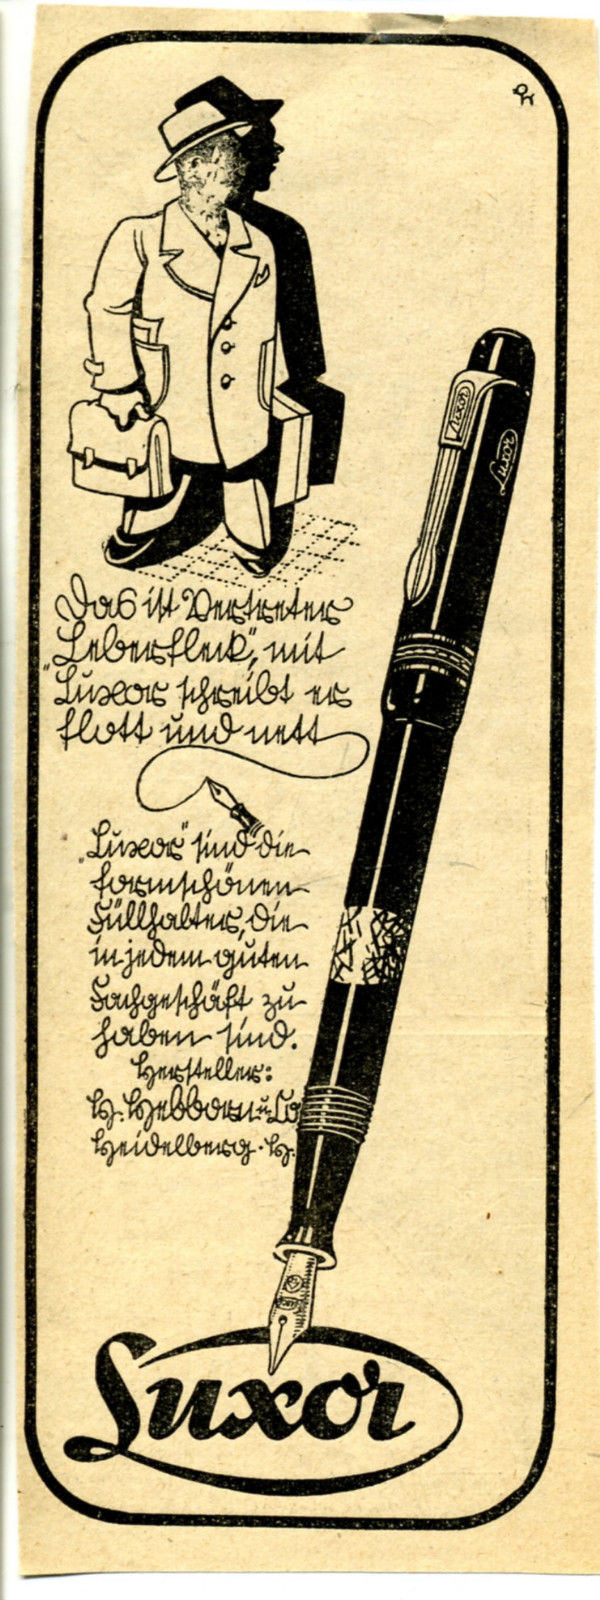 Luxor
Luxor
Das ist Vertreter
Leberfleck", mit
"Luxor schreibt er
flott und nett
"Luxor" sind die
formschönen
Füllhalter, die
in jedem guten
Fachgeschäft zu
haben sind.
Hersteller:
H. Hebborn u. Co
Heidelberg · H.
Luxor